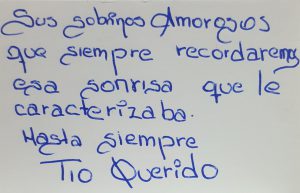 Sus sobinos Amorosos
que siempre recordaremos
esa sonrisa que le
caracterizaba.
Hasta siempre
Tio Querido